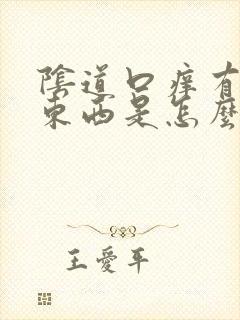 陰道口痒有
東西是怎麼
王愛平